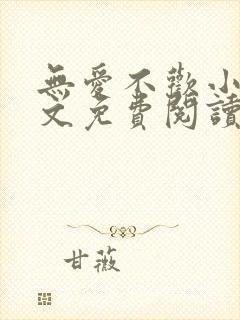 無愛不歡小
文免費閱讀
甘薇